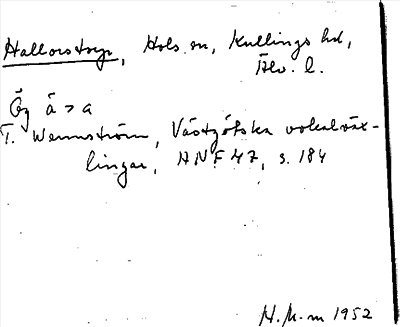 Hallorstorp, Hols sn, Kullings hd,
Älv. l.
Ög å > a
T. Wennström, Västgötska vokalväx-
lingar, ANF 47, s. 184
H. M-m 1952